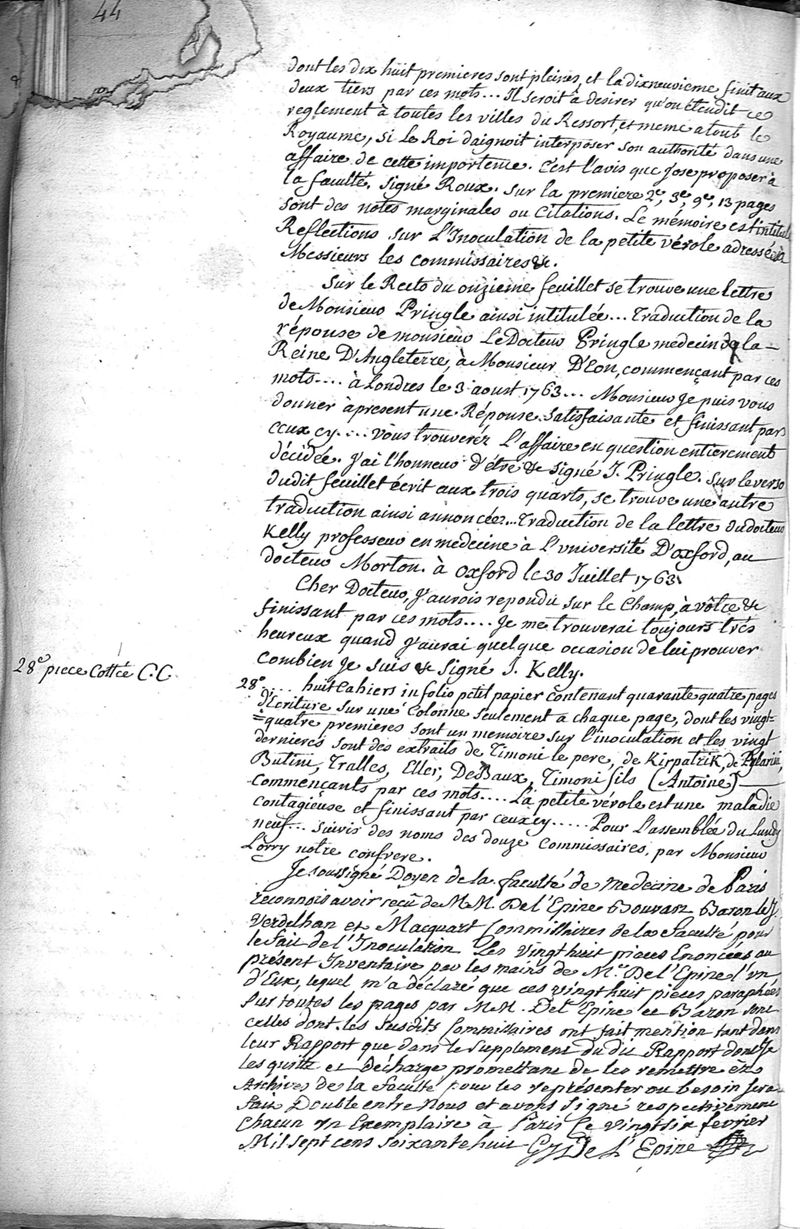 44
dont les dix huit premieres sont pleines, et la dixneuvieme finit aux
deux tiers par ces mots... Il seroit à desirer qu'on étendit ce
reglement à toutes les villes du Ressort, et meme a tout le
Royaume, si le Roi daignoit interposer son authorité dans une
affaire de cette importence. C'est l'avis que j'ose proposer à
la faculté. signé Roux. Sur la premiere 2e, 3e, 9e, 13 pages
sont des notes marginales ou Citations. Le mémoire est intitulé
Reflections sur L'Inoculation de la petite vérole adressé à
Messieurs les commissaires &c.
Sur le Recto du onzieme feuillet se trouve une lettre
de Monsieur Pringle ainsi intitulée... Traduction de la
réponse de monsieur Le Docteur Pringle medecin de la
Reine D'Angleterre, à Monsieur D'Eon, commençant par ces
mots.... à Londres le 3 aoust 1763... Monsieur je puis vous
donner àpresent une Réponse satisfaisante et finissant par
ceux cy.... vous trouverez L'affaire en question entierement
décidée. j'ai l'honneur d'étre & signé J. Pringle. Sur le verso
dudit feuillet écrit aux trois quarts, se trouve une autre
traduction ainsi annoncée... Traduction de la lettre du docteur
Kelly professeur en medecine à L'université D'oxford, au
docteur Morton. à oxford le 30 Juillet 1763.
Cher Docteur, j'aurois repondu sur le Champ, à vôtre &
finissant par ces mots.... Je me trouverai toujours trés
heureux quand j'aurai quelque occasion de lui prouver
combien je suis & signé J. Kelly.
28e piece Cottée C.C.
28e... huit Cahiers in folio petit papier contenant quarante quatre pages
d'écriture sur une Colonne seulement à chaque page, dont les vingt-
=quatre premieres sont un memoire sur l'inoculation et les vingt
dernieres sont des extraits de Timoni le pere, de Kirpatrik, de Pylarini,
Butini, Tralles, Eller, De Baux, Timoni fils (Antoine)
Commençants par ces mots.... La petite vérole est une maladie
contagieuse et finissant par ceux cy..... Pour L'assemblée du Lundy
neuf... suivis des noms des douze commissaires, par Monsieur
Lorry notre confrere.
Je soussigné Doyen de la faculté de Medecine de Paris
reconnois avoir reçu de M.M. De l'Epine Bouvart Baron le J.
Verdelhan et Macquart Commissaires de la Faculté pour
le fait de l'Inoculation Les vingt huit pieces Enoncées au
présent Inventaire par les mains de Mr. De l'Epine l'un
d'Eux, lequel m'a déclaré que ces vingt huit pieces paraphées
sur toutes les pages par M.M. De l'Epine et Baron sont
celles dont les susdits Commissaires ont fait mention tant dans
leur Rapport que dans le supplement du dit Rapport dont Je
les quitte et décharge promettant de les remettre ès
Archives de la Faculté pour les représenter au besoin sera
fait Double entre nous et avons signé respectivement
Chacun un Exemplaire à Paris ce vingt six fevrier
Mil sept cens soixante huit De l'Epine